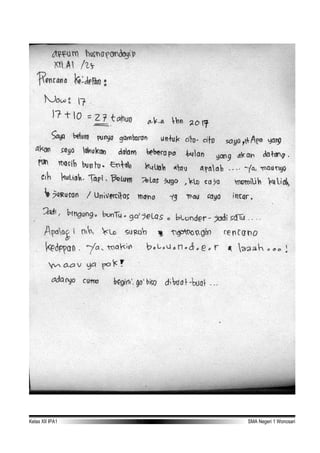 arrum
XII.A1 /25
Rencana Ke depan :
Now : 17
17 + 10 = 27 tahun a.k.a thn 2017
Saya belum punya gambaran untuk cita-cita saya, Apa yang
akan saya lakukan dalam beberapa bulan yang akan datang.
pun masih buntu. Entah kuliah atau apalah .... ya, maunya
sih kuliah. Tapi. Belum jelas juga, klo cuma memilih kuliah,
Jurusan / Universitas mana yg mau saya incar.
Jadi, bingung, bunTu - ga' jelas = blunder - jadi saTu ....
Apalagi nih klo suruh rencana
kedepan. ya. makin b.l.u.n.d.e.r laaah ... !
maav ya pak !
adanya cuma begini. ga' bisa dibuat-buat ...
Kelas XII IPA1
SMA Negeri 1 Wonosari